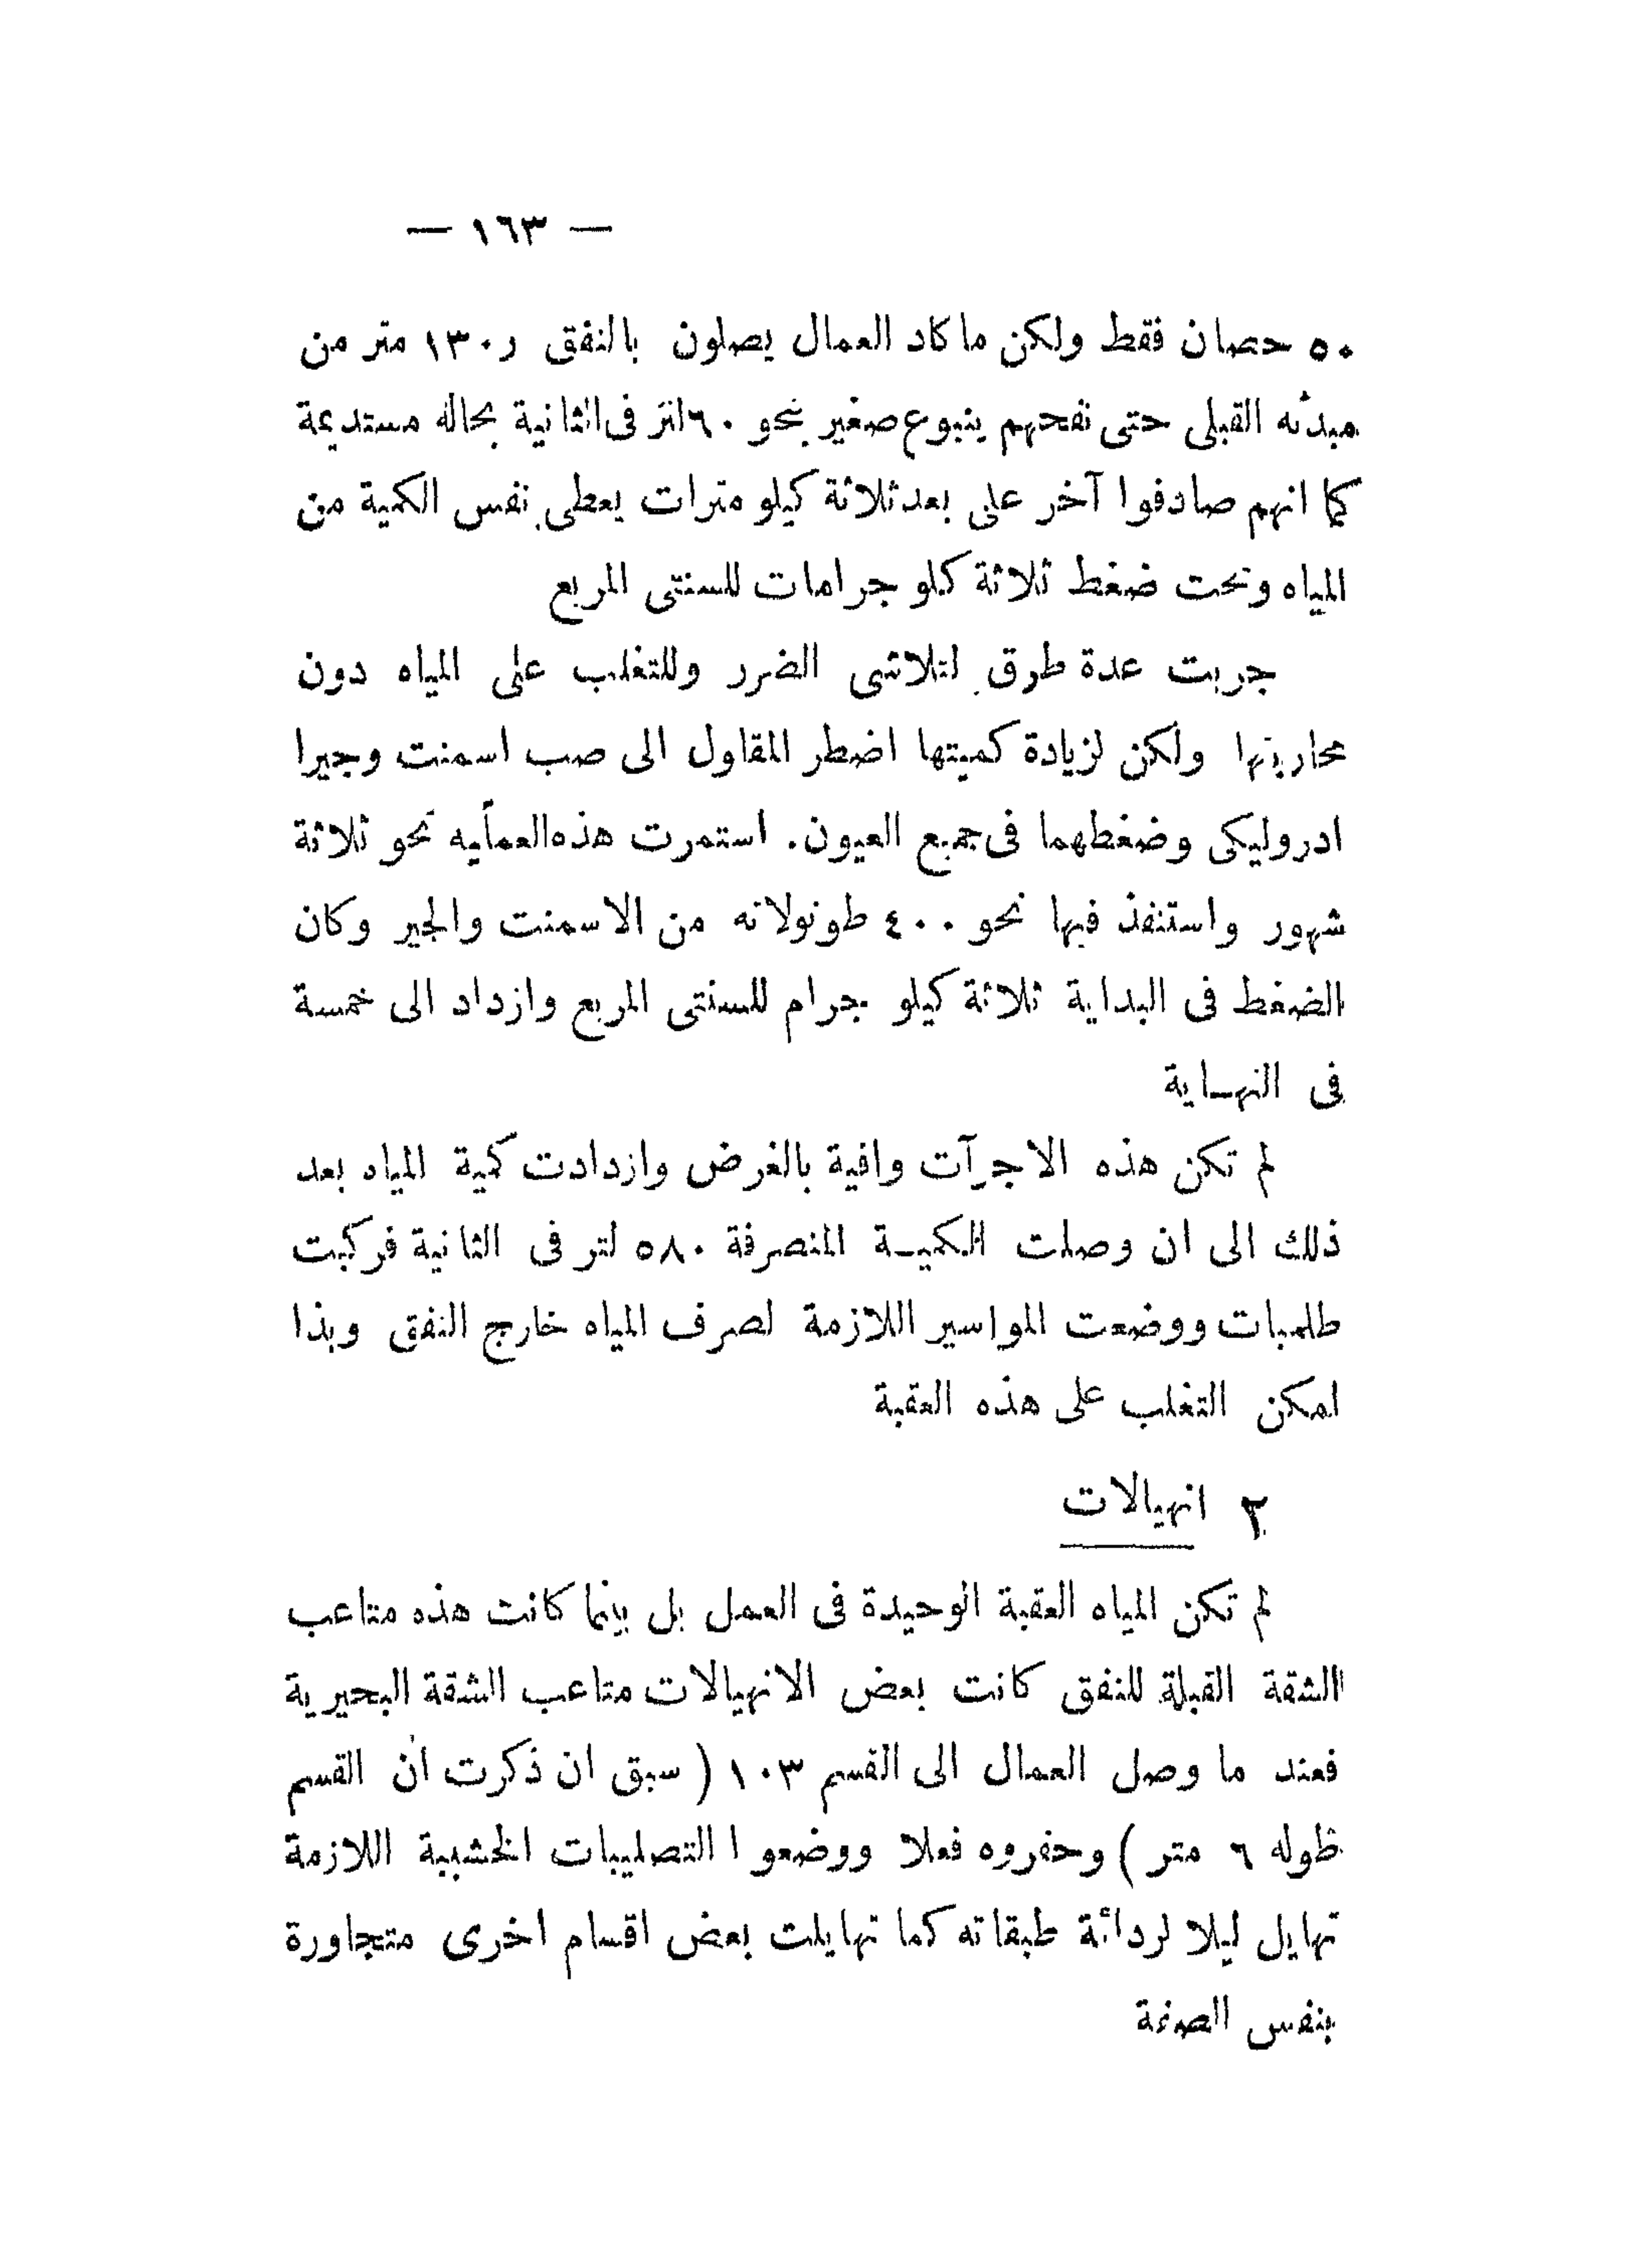 — ١٦٣ —
٥٠ حصان فقط ولكن ما كاد العمال يصلون بالنفق ر١٣٠ متر من
مبدئه القبلى حتى نفحهم ينبوع صغير بنحو ٦٠ لتر فى الثانية بحاله مستديمة
كما انهم صادفوا آخر على بعد ثلاثة كيلو مترات يعطى نفس الكمية من
المياه وتحت ضغط ثلاثة كلو جرامات للسنتى المربع
جربت عدة طرق لتلاشى الضرر وللتغلب على المياه دون
محاربتها ولكن لزيادة كميتها اضطر المقاول الى صب اسمنت وجيرا
ادروليكى وضغطهما فى جميع العيون. استمرت هذه العمليه نحو ثلاثة
شهور واستنفذ فيها نحو ٤٠٠ طونولاته من الاسمنت والجير وكان
الضغط فى البداية ثلاثة كيلو جرام للسنتى المربع وازداد الى خمسة
فى النهاية
لم تكن هذه الاجرآت وافية بالغرض وازدادت كمية المياه بعد
ذلك الى ان وصلت الكمية المنصرفة ٥٨٠ لتر فى الثانية فركبت
طلمبات ووضعت المواسير اللازمة لصرف المياه خارج النفق وبذا
امكن التغلب على هذه العقبة
٢ انهيالات
لم تكن المياه العقبة الوحيدة فى العمل بل بينما كانت هذه متاعب
الشقة القبلة للنفق كانت بعض الانهيالات متاعب الشقة البحيرية
فعند ما وصل العمال الى القسم ١٠٣ ( سبق ان ذكرت ان القسم
طوله ٦ متر ) وحفروه فعلا ووضعوا التصليبات الخشبية اللازمة
تهايل ليلا لردائة طبقاته كما تهايلت بعض اقسام اخرى متجاورة
بنفس الصفة